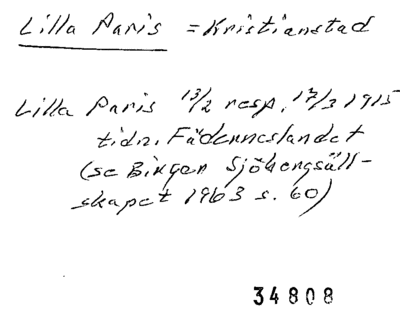 Lilla Paris = Kristianstad
Lilla Paris 13/2 resp. 17/3 1915
tidn. Fäderneslandet
(se Birger Sjöbergsäll-
skapet 1963 s. 60)
34808